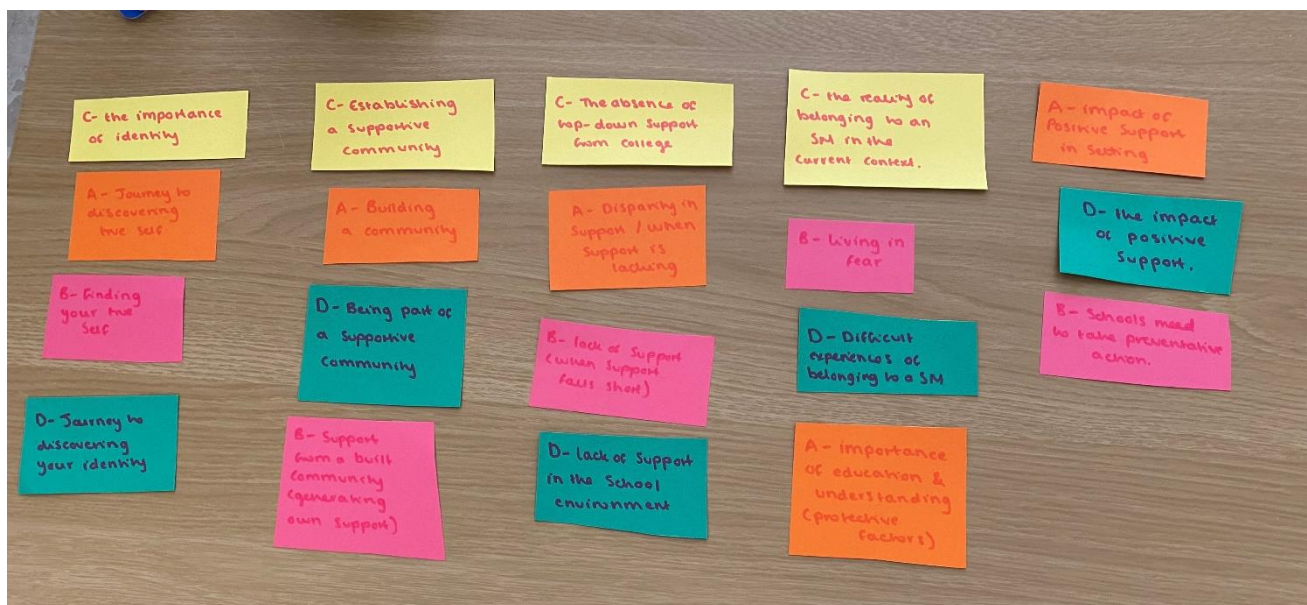 C- the importance
of identity
A- Journey to
discovering
true self
B- finding
your true
self
D- Journey to
discovering
your identity
C- Establishing
a supportive
community
A- Building
a community
D- Being part of
a supportive
community
B- Support
from a built
community
(generating
own support)
C- The absence of
top-down support
from college
A- Disparity in
support / when
support is
lacking
B- lack of support
(when support
falls short)
D- lack of support
in the school
environment
C- the reality of
belonging to an
SM in the
current context.
B- Living in
fear
D- Difficult
experiences of
belonging to a SM
A- importance
of education &
understanding
(protective
factors)
A- impact of
positive support
in setting
D- the impact
of positive
support.
B- Schools need
to take preventative
action.